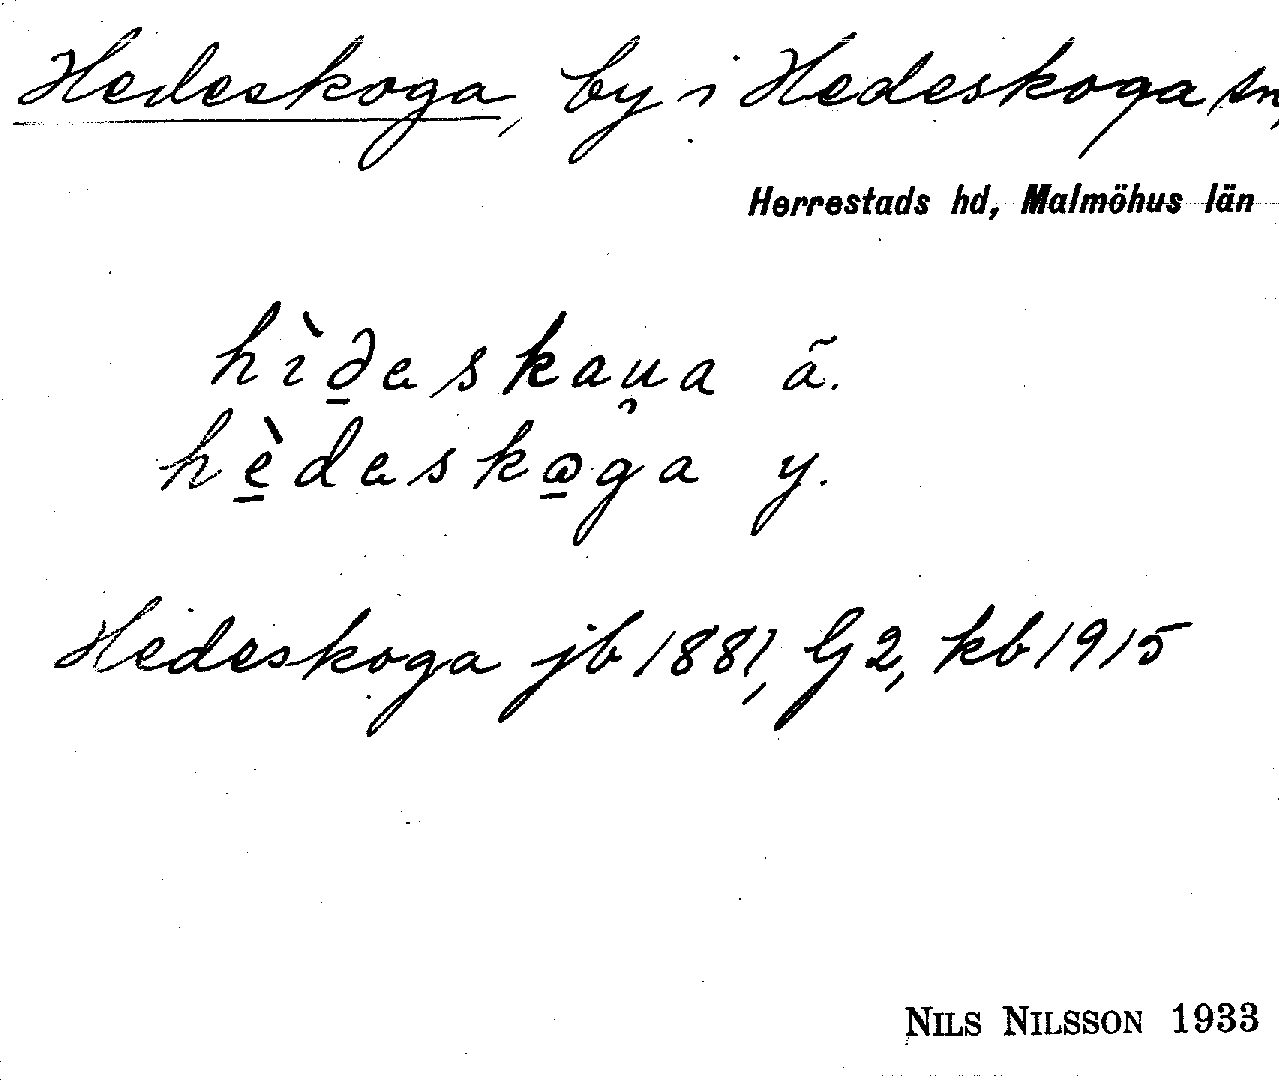 Hedeskoga, by i Hedeskoga sn,
Herrestads hd, Malmöhus län
hìð̠eskau̯a ã.
hè̠deskɷ̠ga y.
Hedeskoga jb 1881, G2, kb 1915
NILS NILSSON 1933